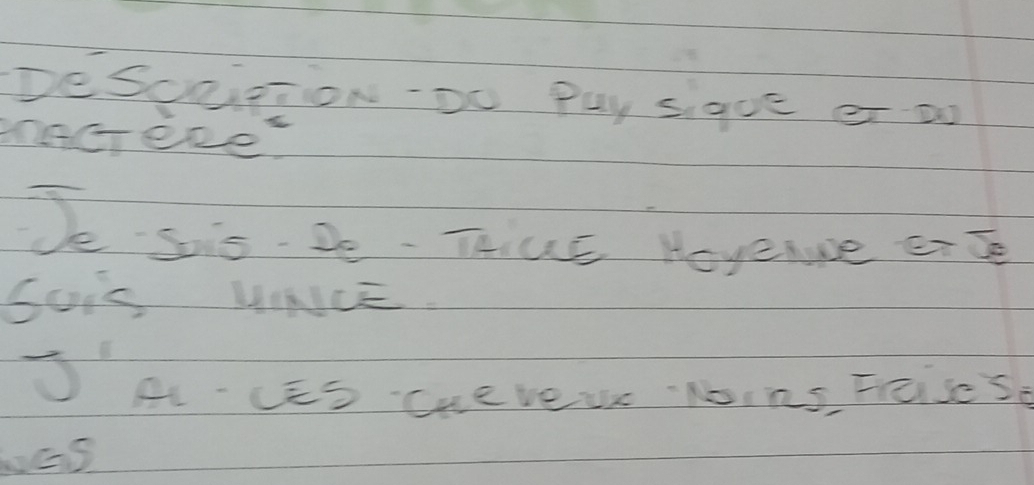 DéSCRiPTiON - DU PHySiQUE eT DU
ARACTèRe
Je SuiS - De - TAiLLE MOyeNNe eT Je
SuiS MiNCE.
J'Ai - LES CHeVeux NOiRS, FRiSéS